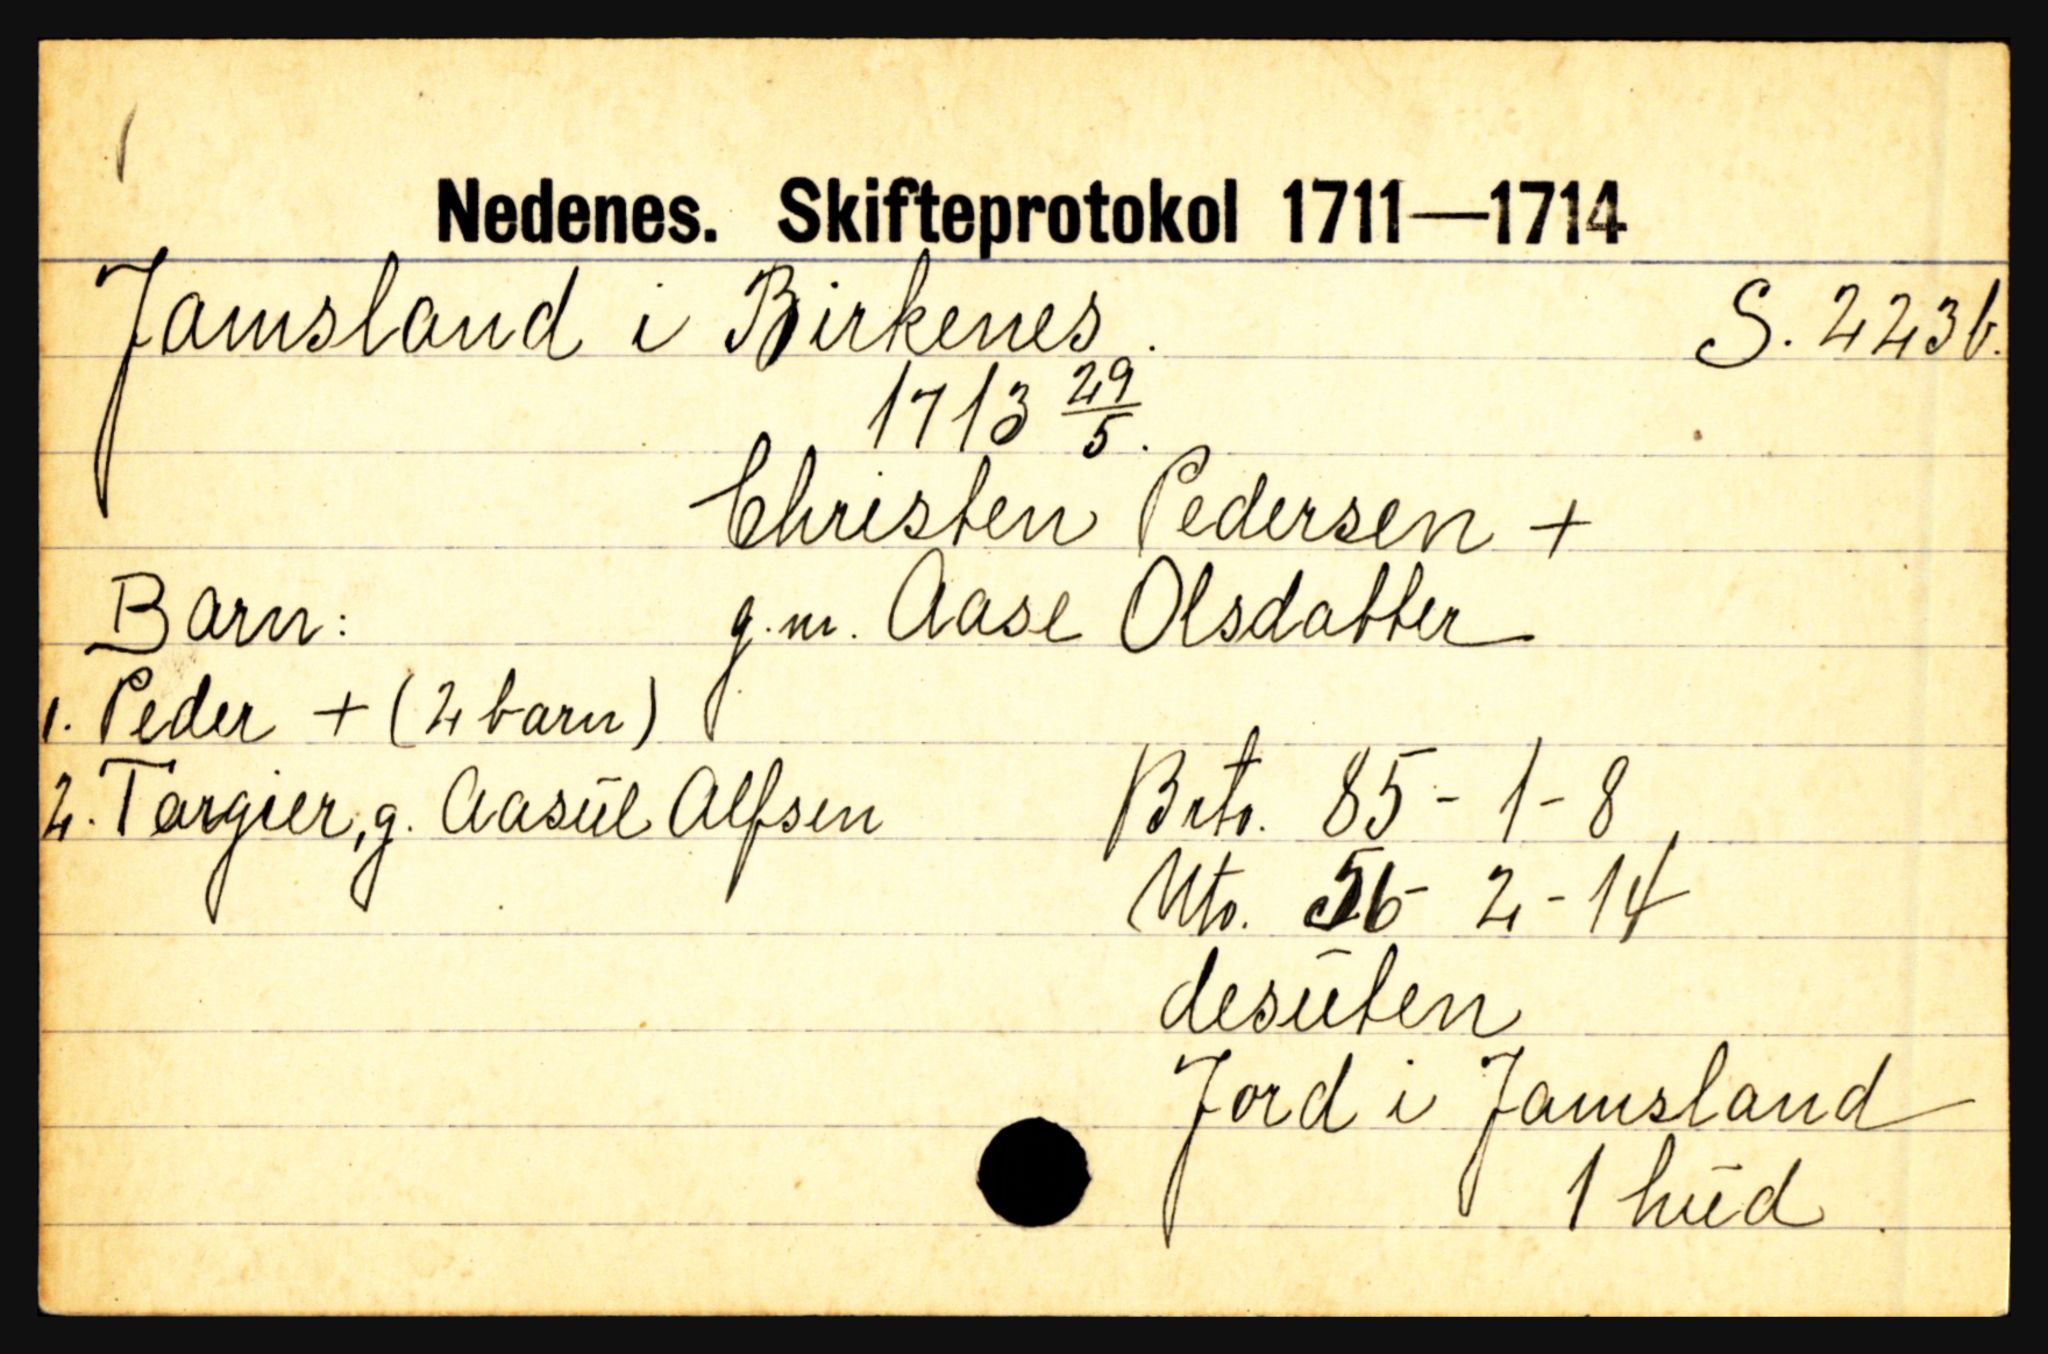 Nedenes. Skifteprotokol 1711—1714
Jamsland i Birkenes. S. 223b.
1713 29/5.
Christen Pedersen +
Barn: g.m. Aase Olsdatter
1. Peder + (2 barn)
2. Targier, g. Aasul Alfsen Brto. 85 - 1 - 8
Nto. 56 - 2 - 14
desuten
Jord i Jamsland
1 hud